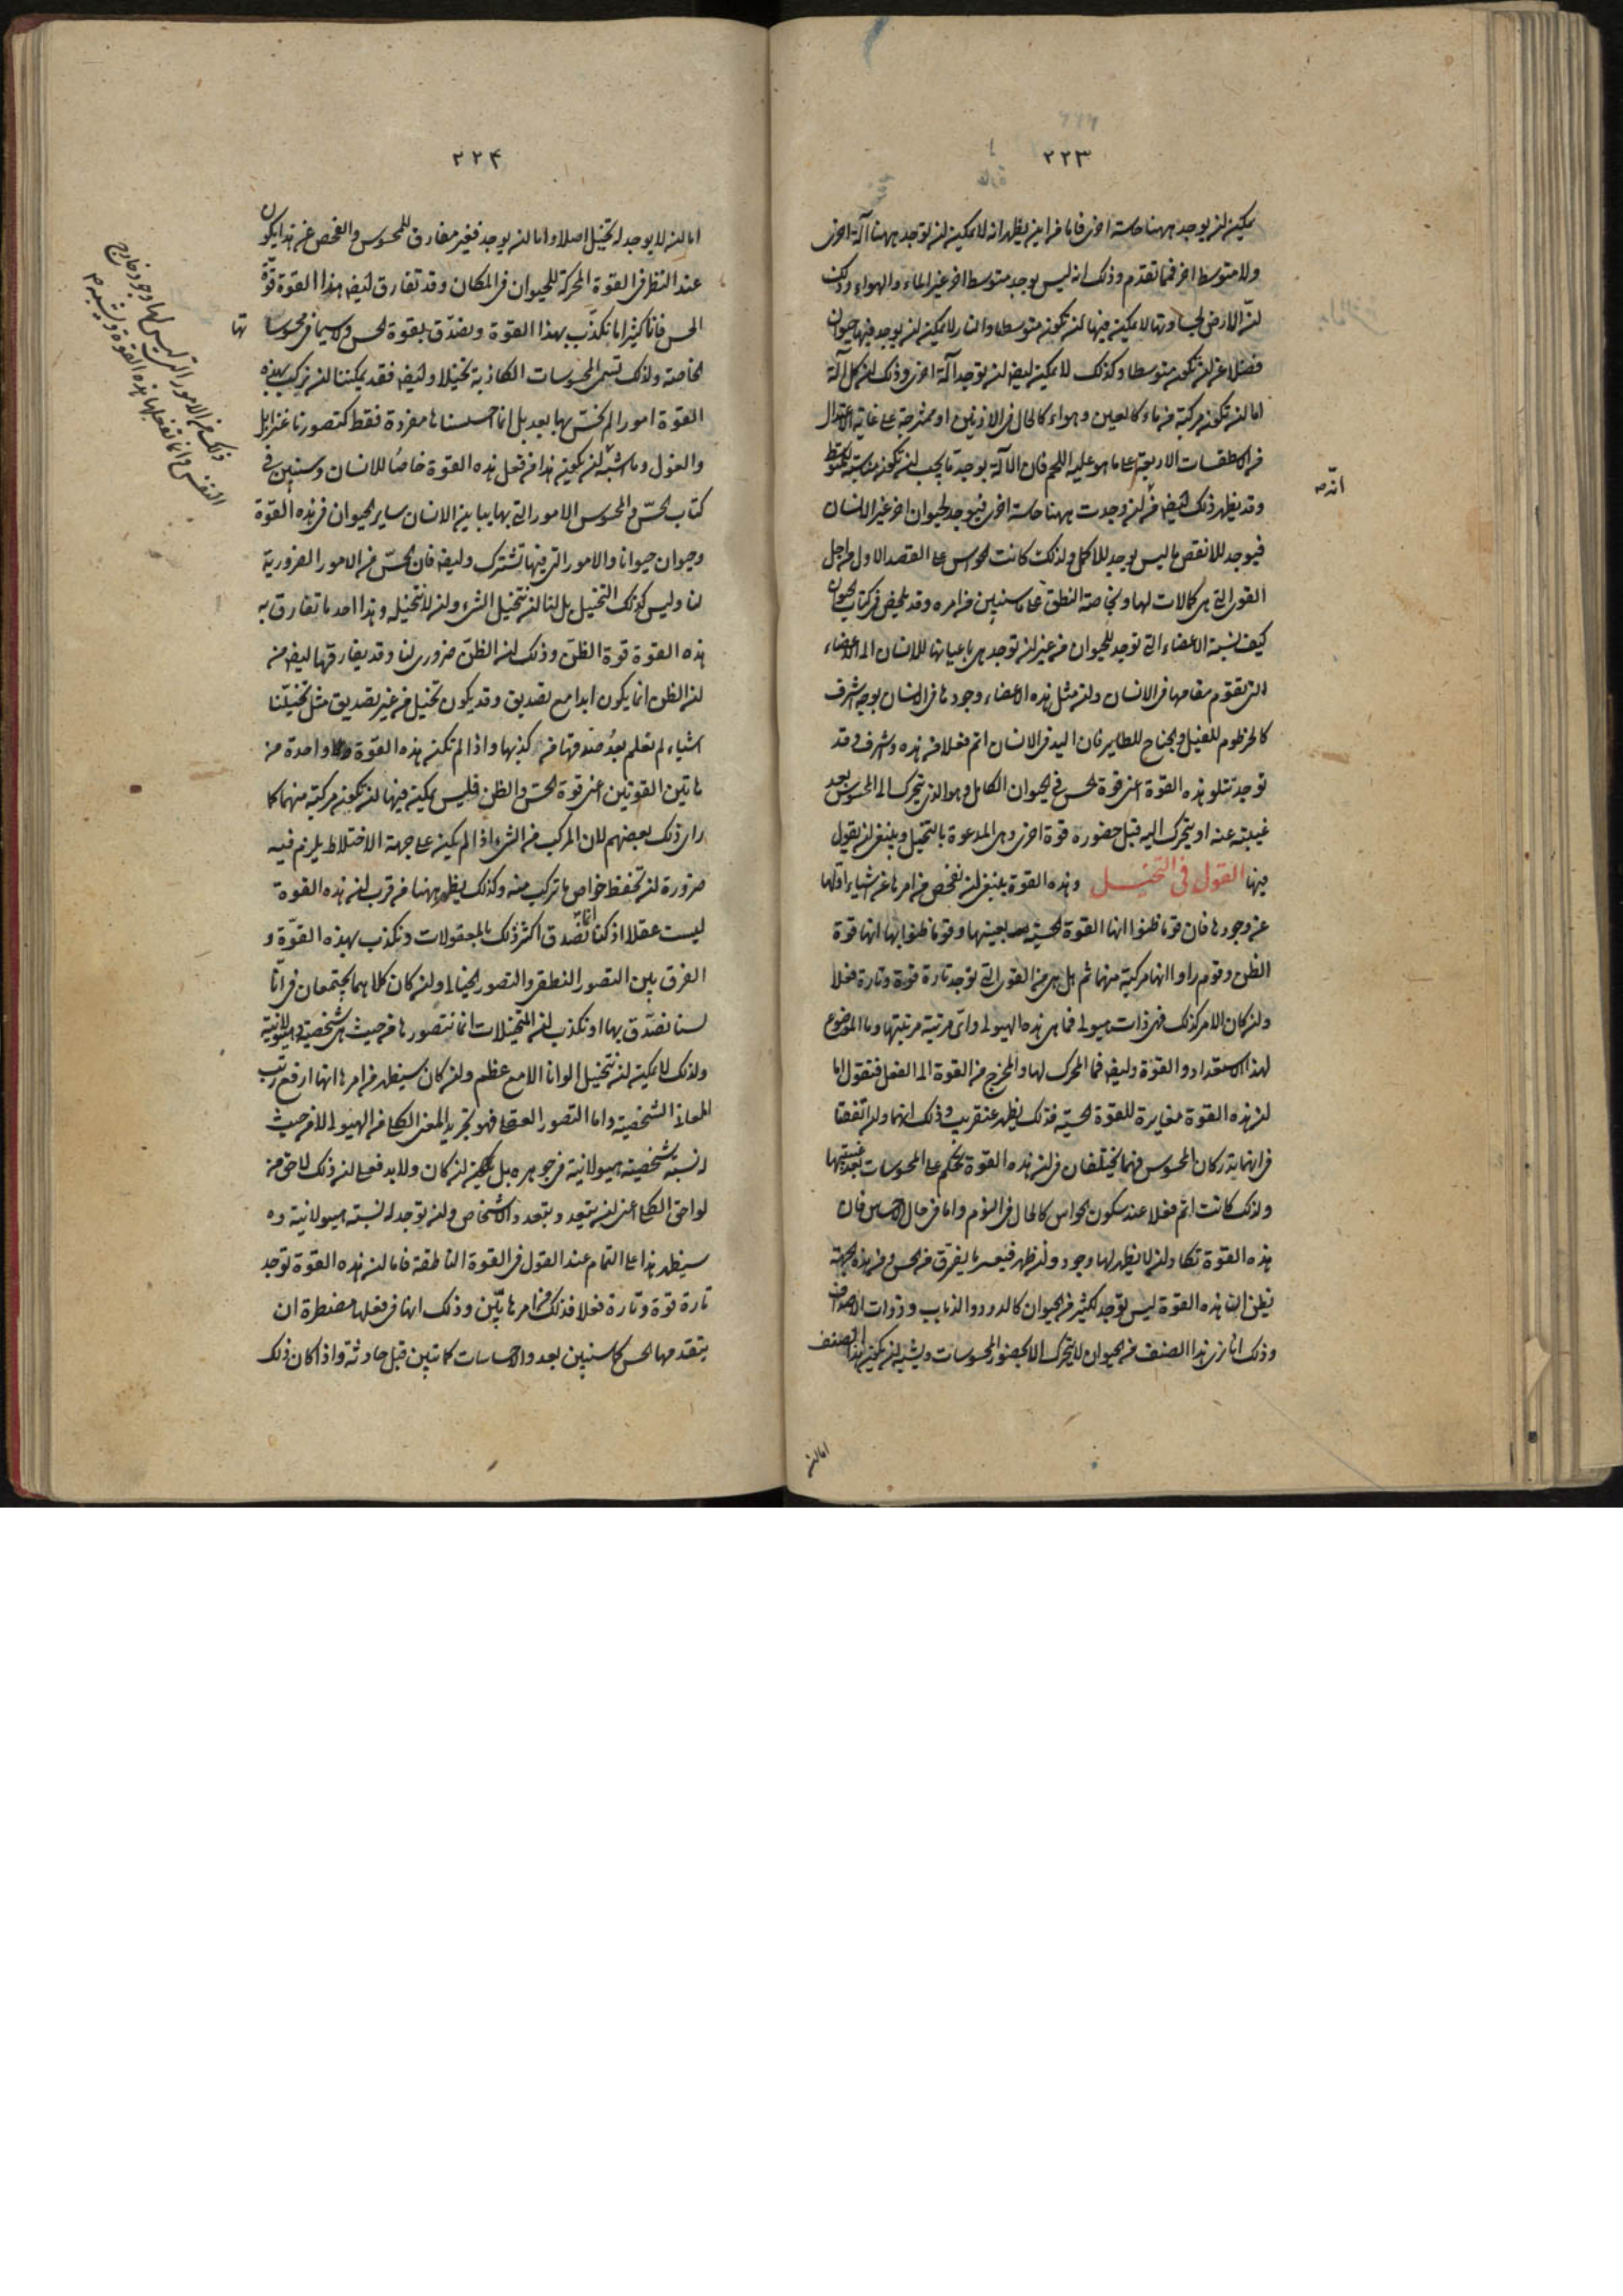 ٢٢٣
يمكن ان يوجد ههنا حاسة اخرى فاما من اين يظهر انه لا يمكن ان توجد ههنا آلة اخرى
ولا متوسط اخر فمما تقدم وذلك انه ليس يوجد متوسط اخر غير الماء والهواء وذلك
لان الارض لجساوتها لا يمكن فيها ان تكون متوسطا والنار لا يمكن ان يوجد فيها حيوان
فضلا عن ان تكون متوسطا وكذلك لا يمكن ايضا ان توجد آلة اخرى وذلك ان كل آلة
اما ان تكون مركبة من ماء كالعين وهواء كالحال في الاذنين او ممتزجة على غاية الاعتدال
من الاسطقسات الاربعة على ما هو عليه اللحم فان الآلة يوجد ما يجب ان تكون مناسبة للمتوسط
وقد يظهر ذلك ايضا من انه ان وجدت ههنا حاسة اخرى فيوجد لحيوان اخر غير الانسان
فيوجد للانقص ما ليس يوجد للاكمل ولذلك كانت الحواس على القصد الاول من اجل
القوى التي هي كمالات لها وبخاصة النطق على ما سنبين من امره وقد يلخص في كتاب الحيوان
كيف نسبة الاعضاء التي توجد للحيوان من غير ان توجد هي باعيانها للانسان الى الاعضاء
التي تقوم مقامها في الانسان وان مثل هذه الاعضاء وجودها في الانسان بوجه اشرف
كالخرطوم للفيل والجناح للطاير فان اليد في الانسان اتم فعلا من هذه واشرف وقد
توجد تتلو هذه القوة اعني قوة الحس في الحيوان الكامل وهو الذي يتحرك الى المحسوس بعد
غيبته عنه او يتحرك اليه قبل حضوره قوة اخرى وهي المدعوة بالتخيل وينبغي ان يقول
فيها القول في التخيل وهذه القوة ينبغي ان نفحص من امرها عن اشياء اولها
عن وجودها فان قوما ظنوا انها القوة الحسية بعينها وقوما ظنوا بها انها قوة
الظن وقوم راوا انها مركبة منهما ثم هل هي من القوى التي توجد تارة قوة وتارة فعلا
وان كان الامر كذلك فهي ذات هيولى فما هي هذه الهيولى واي مرتبة مرتبتها وما الموضوع
لهذا الاستعداد والقوة وايضا فما المحرك لها والمخرج من القوة الى الفعل فنقول اما
ان هذه القوة مغايرة للقوة الحسية فذلك يظهر عن قريب وذلك انهما وان اتفقتا
في انهما يدركان المحسوس فهما يختلفان في ان هذه القوة تحكم على المحسوسات بعد غيبتها
ولذلك كانت اتم فعلا عند سكون الحواس كالحال في النوم واما في حال الاحساس فان
هذه القوة تكاد ان لا يظهر لها وجود وان ظهر فيعسر ما يفرق من الحس ومن هذه الجهة
نظن ان هذه القوة ليس توجد لكثير من الحيوان كالدود والذباب وذوات الاصداف
وذلك انا نرى هذا الصنف من الحيوان لا يتحرك الا بحضور المحسوسات ويشبه ان يكون هذا الصنف
اما ان
انه صح
٢٢٤
اما ان لا يوجد له تخيل اصلا واما ان يوجد فغير مفارق للمحسوس والفحص عن هذا يكون
عند النظر في القوة المحركة للحيوان في المكان وقد تفارق ايضا هذا القوة قوة
الحس فانا كثيرا ما نكذب بهذا القوة ونصدق بقوة الحس ولا سيما في محسوسا
تها
الخاصة ولذلك تسمى المحسوسات الكاذبة تخيلا وايضا فقد يمكننا ان نركب بهذه
القوة امورا لم نحس بها بعد بل انما احسسناها مفردة فقط كتصورنا عنزايل
والغول وما اشبه ان يكون هذا من فعل هذه القوة خاصا للانسان وسنبين في
كتاب الحس والمحسوس الامور التي بها يباين الانسان ساير الحيوان في هذه القوة
وحيوان حيوانا والامور التي فيها تشترك وايضا فان الحس من الامور الضرورية
لنا وليس كذلك التخيل بل لنا ان نتخيل الشيء وان لا نتخيله وهذا احد ما تفارق به
هذه القوة قوة الظن وذلك ان الظن ضروري لنا وقد يفارقها ايضا من
ان الظن انما يكون ابدا مع تصديق وقد يكون تخيل من غير تصديق مثل تخيلنا
اشياء لم نعلم بعد صدقها من كذبها واذا لم تكن هذه القوة ولا واحدة من
هاتين القوتين اعني قوة الحس والظن فليس يمكن فيها ان تكون مركبة منهما كما
راى ذلك بعضهم لان المركب من الشيء اذا لم يكن على جهة الاختلاط يلزم فيه
ضرورة ان تحفظ خواص ما تركب منه وكذلك يظهر ههنا من قرب ان هذه القوة
ليست عقلا اذ كنا انما نصدق اكثر ذلك بالمعقولات ونكذب بهذه القوة و
الفرق بين التصور النطقي والتصور الخيالي وان كان كلاهما يجتمعان في انا
لسنا نصدق بها او نكذب ان المتخيلات انما نتصورها من حيث هي شخصية وهيولانية
ولذلك لا يمكن ان نتخيل الوانا الا مع عظم وان كان سيظهر من امرها انها ارفع رتب
المعاني الشخصية واما التصور العقلي فهو تجريد المعنى الكلي من الهيولى لا من حيث
له نسبة شخصية هيولانية في جوهره بل ان كان ولا بد فعلى ان ذلك لاحق من
لواحق الكلي اعني ان يتعدد بتعدد الاشخاص وان توجد له نسبة هيولانية وه
سيظهر هذا على التمام عند القول في القوة الناطقة فاما ان هذه القوة توجد
تارة قوة وتارة فعلا فذلك من امرها بين وذلك انها في فعلها مضطرة ان
يتقدمها الحس كما سنبين بعد والاحساسات كما تبين قبل حادثة واذا كان ذلك
ذلك من الامور التي ليس لها وجود خارج
النفس وانما تفعلها هذه القوة ويشبه صح